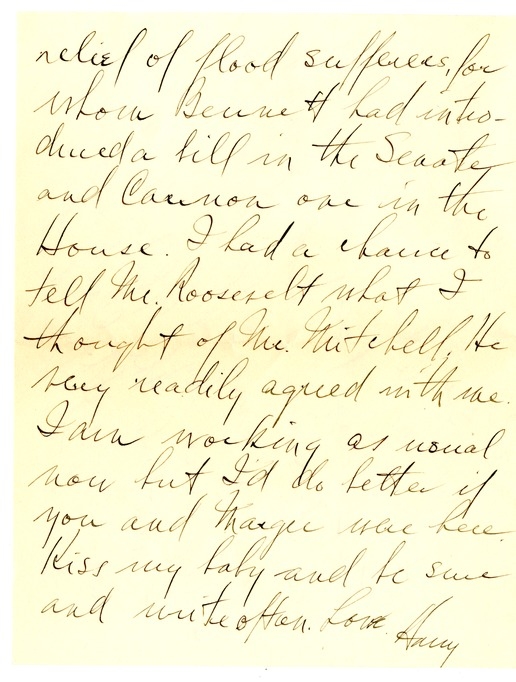 relief of flood sufferers, for
whom Bennett had intro-
duced a bill in the Senate
and Cannon one in the
House. I had a chance to
tell Mr. Roosevelt what I
thought of Mr. Mitchell. He
very readily agreed with me.
I am working as usual
now but I'd do better if
you and Margie were here.
Kiss my baby and be sure
and write often. Love
Harry